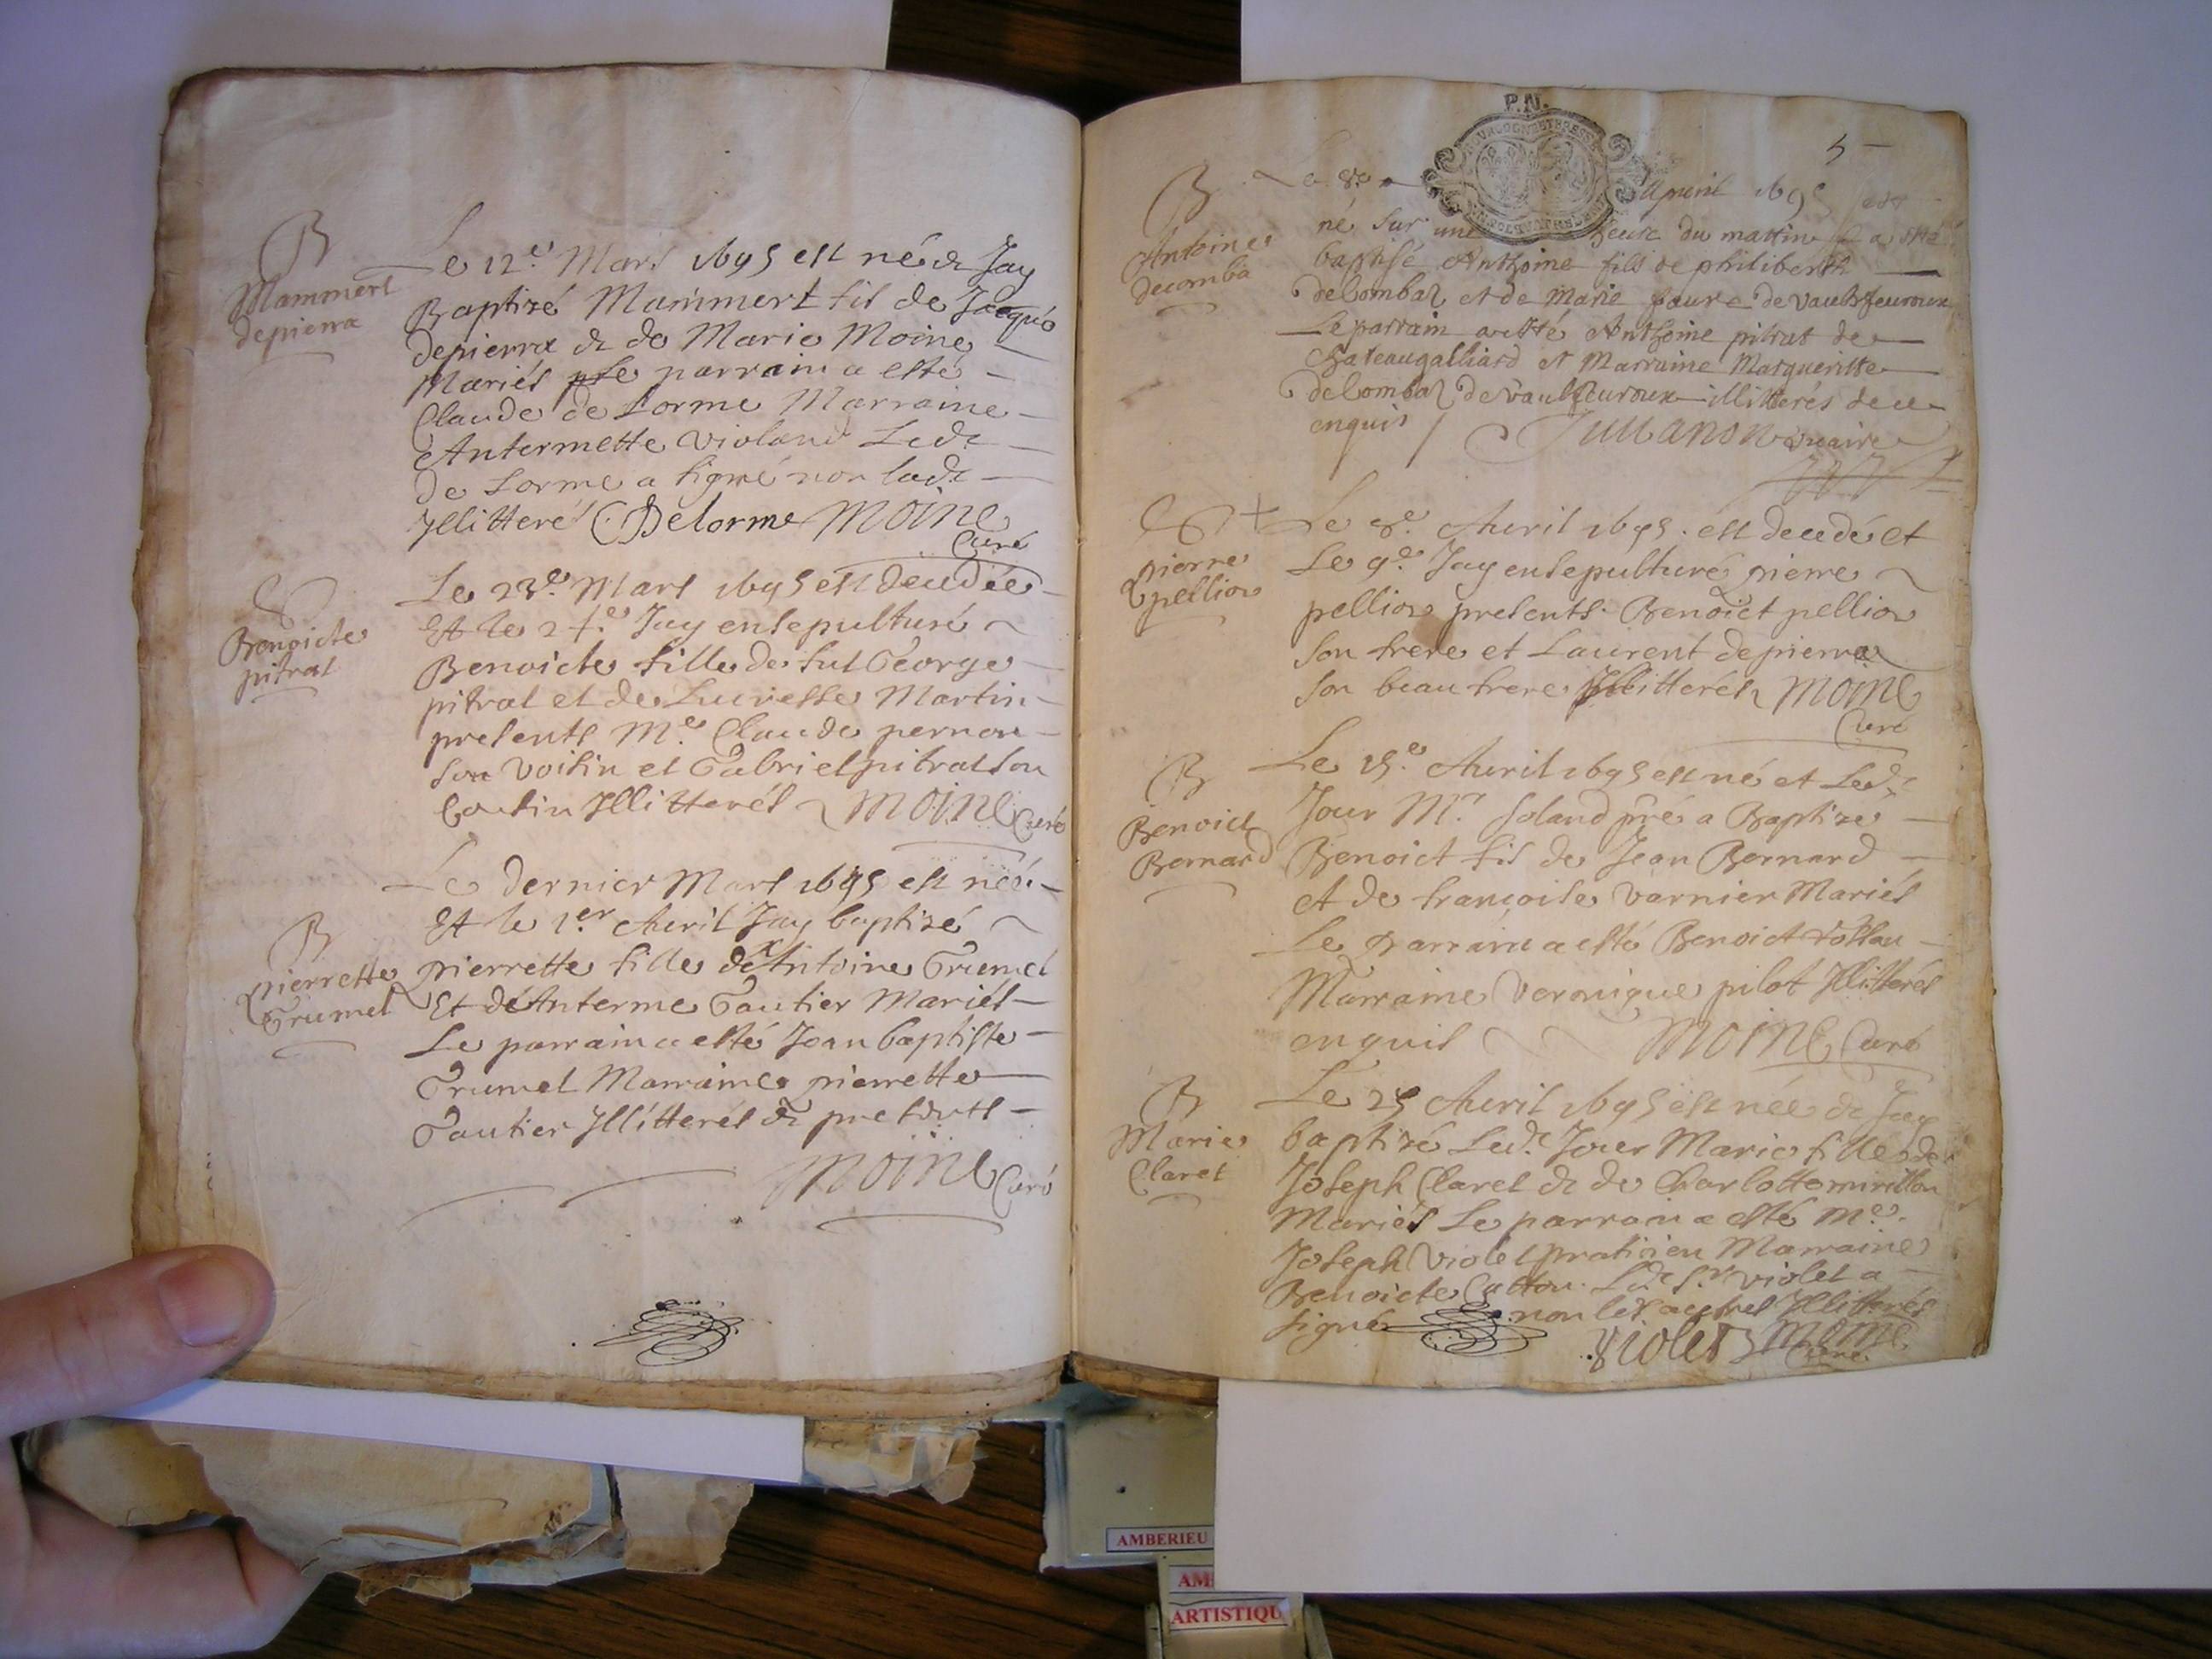 B
Mammert
depierra
Le 12.e Mars 1695 est né & Jay
Baptizé Mammert fils de Jacque
depierra & de Marie Moine
Mariés Le parrain a esté
Claude de Lorme Marraine
Antermette Violand Ledt
De Lorme a signé non ladt
Jllitteré C. Delorme Moine
Curé
Benoicte
pitrat
Le 23.e Mars 1695 est decedée
Et le 24.e Jay ensepulturé
Benoicte fille de fut George
pitrat et de Lucresse Martin
presents M.e Claude pernon
son voisin et Gabriel pitrat son
Cousin Jllitterés Moine Curé
B
pierrette
Grumel
Le dernier Mars 1695 est néé
Et le 1.er Auril Jay baptizé
pierrette fille de Antoine Grumel
Et de Anterme Gautier Mariés
Le parrain a esté Jean baptiste
Grumel Marraine pierrette
Gautier Jllitterés & presents
Moine Curé
P.N.
5
B
Antoine
decomba
Le 8.e apuril 1695 est
né sur une heure du mattin & a esté
baptisé Anthoine fils de philiberth
delombaz et de Marie faure de vaultzfeuroux
Le parrain a esté Anthoine pitrat de
Chateaugalliard et Marraine Margueritte
delombaz de vaultzeuroux illitterés de ce
enquis Jullanon vicaire
pierre
pellion
Le 8.e Auril 1695. est decedé et
Le 9.e Jay ensepulturé pierre
pellion presents Benoict pellion
son frere et Laurent depierra
son beau frere Jllitterés Moine
Curé
B
Benoict
Bernard
Le 15.e Auril 1695 est né et Ledt
Jour M.r Soland pre a Baptize
Benoict fils de Jean Bernard
et de francoise varnier Mariés
Le parrain a esté Benoict
Marraine Veronique pilot Jllitterés
enquis Moine Curé
B
Marie
Claret
Le 25 Auril 1695 est née & Jay
baptizé Ledt Jour Marie fille de
Joseph Claret & de Charlotte miritton
Mariés Le parrain a esté M.e
Joseph Violet praticien Marraine
Benoicte Catton. Ledt S.r violet a
signé non les autres Jllitterés
violet Moine
Curé
AMBERIEU
AM
ARTISTIQU